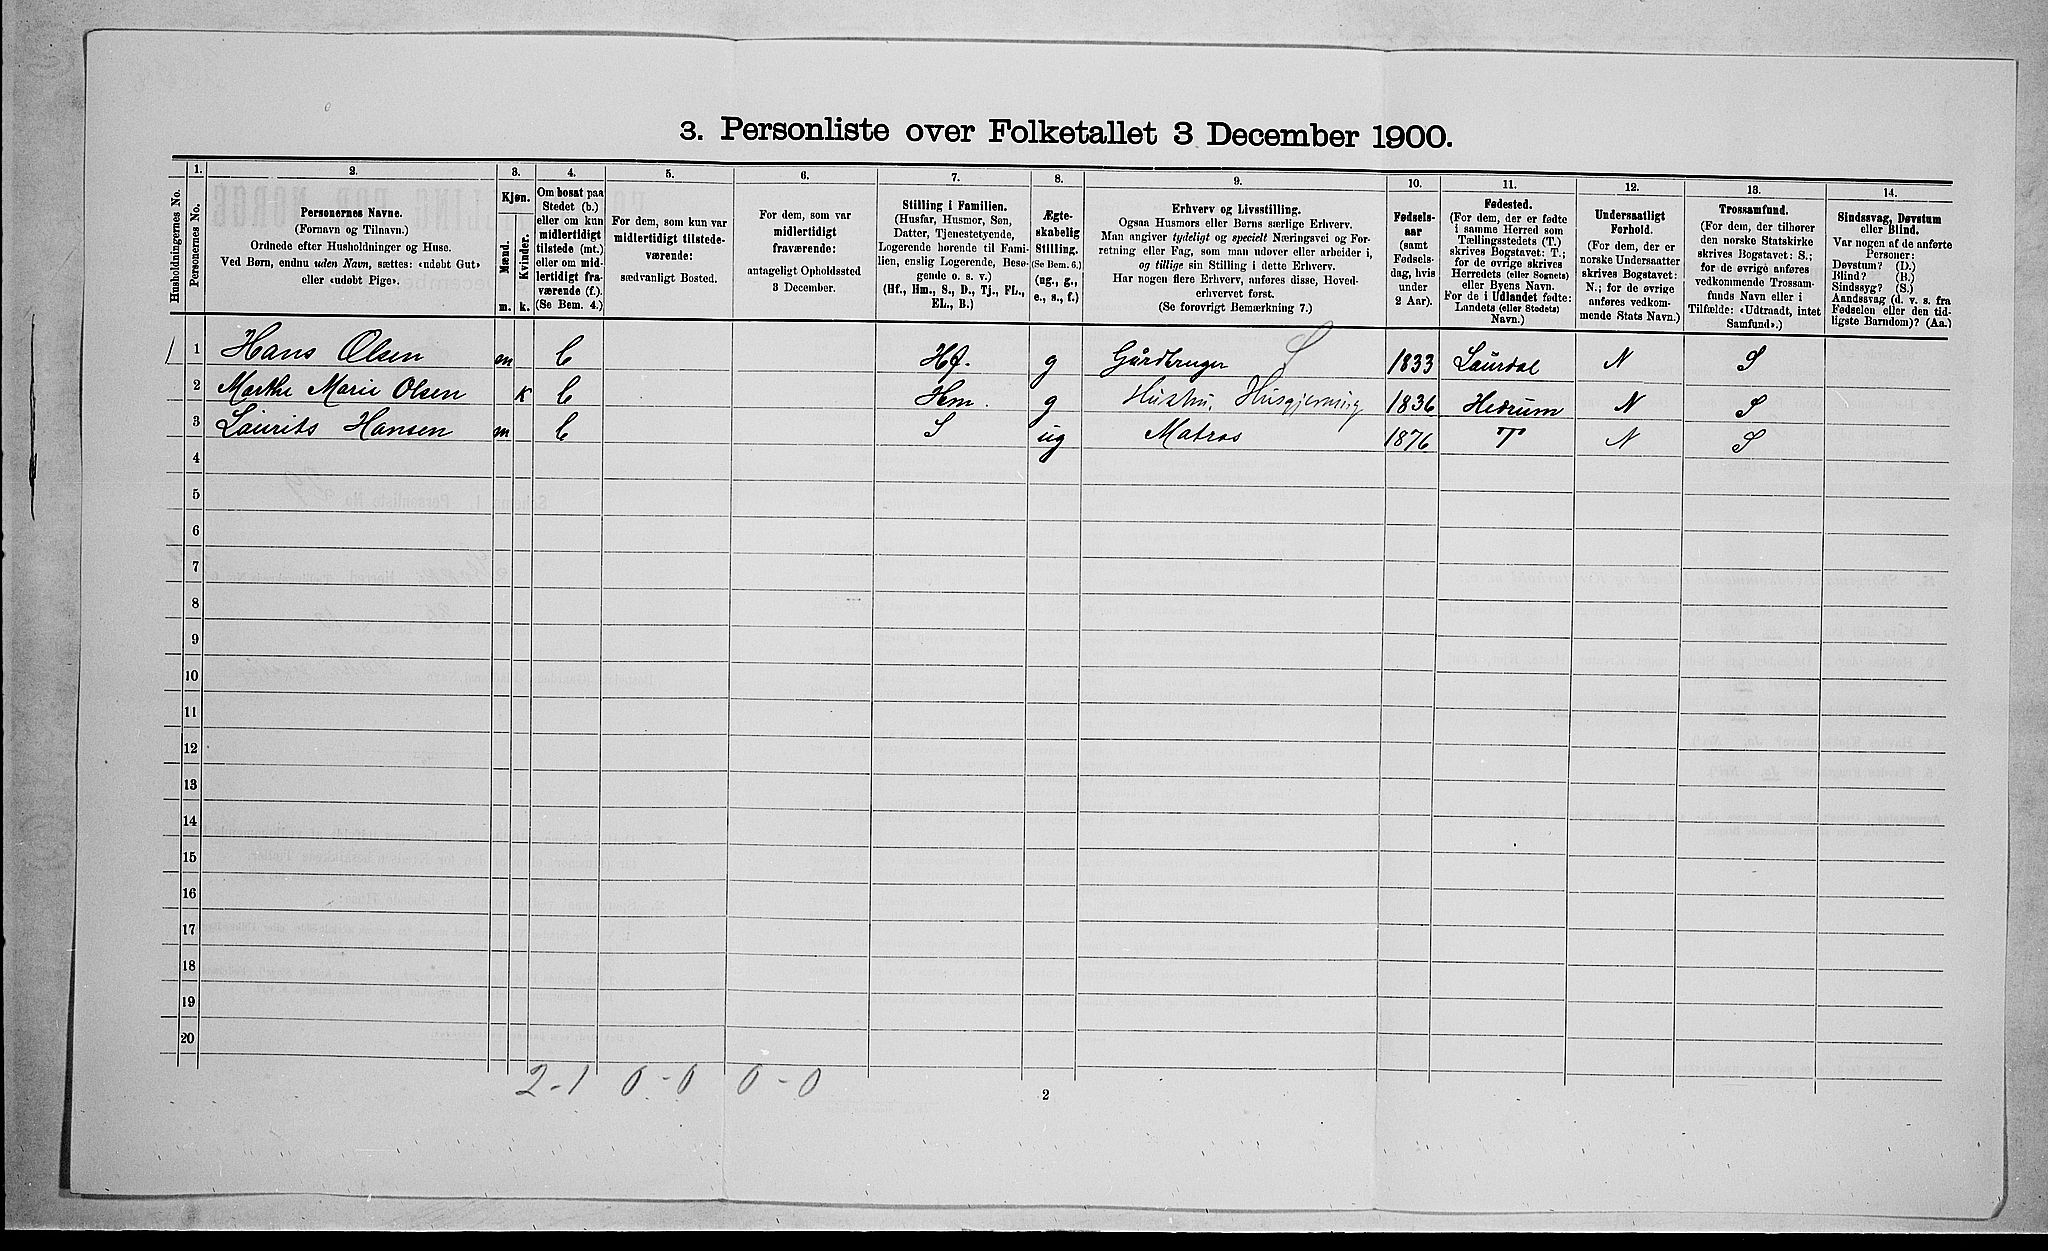 3. Personliste over Folketallet 3 December 1900.
Husholdningernes No.
1.
Personernes No.
2.
Personernes Navne.
(Fornavn og Tilnavn.)
Ordnede efter Husholdninger og Huse.
Ved Børn, endnu uden Navn, sættes: «udøbt Gut»
eller «udøbt Pige».
3.
Kjøn.
Mænd.
Kvinder.
m. k.
4.
Om bosat paa
Stedet (b.)
eller om kun
midlertidigt
tilstede (mt.)
eller om mid-
lertidigt fra-
værende (f.).
(Se Bem. 4.)
5.
For dem, som kun var
midlertidigt tilstede-
værende:
sædvanligt Bosted.
6.
For dem, som var
midlertidigt
fraværende:
antageligt Opholdssted
3 December.
7.
Stilling i Familien.
(Husfar, Husmor, Søn,
Datter, Tjenestetyende,
Logerende hørende til Fami-
lien, enslig Logerende, Besø-
gende o. s. v.)
(Hf., Hm., S., D., Tj., FL.,
EL., B.)
8.
Ægte-
skabelig
Stilling.
(Se Bem. 6.)
(ug., g.,
e., s., f.)
9.
Erhverv og Livsstilling.
Ogsaa Husmors eller Børns særlige Erhverv.
Man angiver tydeligt og specielt Næringsvei og For-
retning eller Fag, som man udøver eller arbeider i,
og tillige sin Stilling i dette Erhverv.
Har nogen flere Erhverv, anføres disse, Hoved-
erhvervet først.
(Se forøvrigt Bemærkning 7.)
10.
Fødsels-
aar
(samt
Fødsels-
dag, hvis
under
2 Aar).
11.
Fødested.
(For dem, der er fødte
i samme Herred som
Tællingsstedets (T.)
skrives Bogstavet: T.;
for de øvrige skrives
Herredets (eller Sognets)
eller Byens Navn.
For de i Udlandet fødte:
Landets (eller Stedets)
Navn.)
12.
Undersaatligt
Forhold.
(For dem, der er
norske Undersaatter
skrives Bogstavet:
N.; for de øvrige
anføres vedkom-
mende Stats Navn.)
13.
Trossamfund.
(For dem, der tilhører
den norske Statskirke
skrives Bogstavet: S.;
for de øvrige anføres
vedkommende Trossam-
funds Navn eller i
Tilfælde: «Udtraadt, intet
Samfund».)
14.
Sindssvag, Døvstum
eller Blind.
Var nogen af de anførte
Personer:
Døvstum? (D.)
Blind? (B.)
Sindssyg? (S.)
Aandssvag (d. v. s. fra
Fødselen eller den tid-
ligste Barndom)? (Aa.)
1 1 Hans Olsen m b Hf. g Gårdbruger S 1833 Laurdal N S
2 Marthe Marie Olsen k b Hm. g Hustru, Husgjerning 1836 Hedrum N S
3 Laurits Hansen m b S ug Matros 1876 T N S
4
5
6
7
8
9
10
11
12
13
14
15
16
17
18
19
20
2-1 0-0 0-0
2